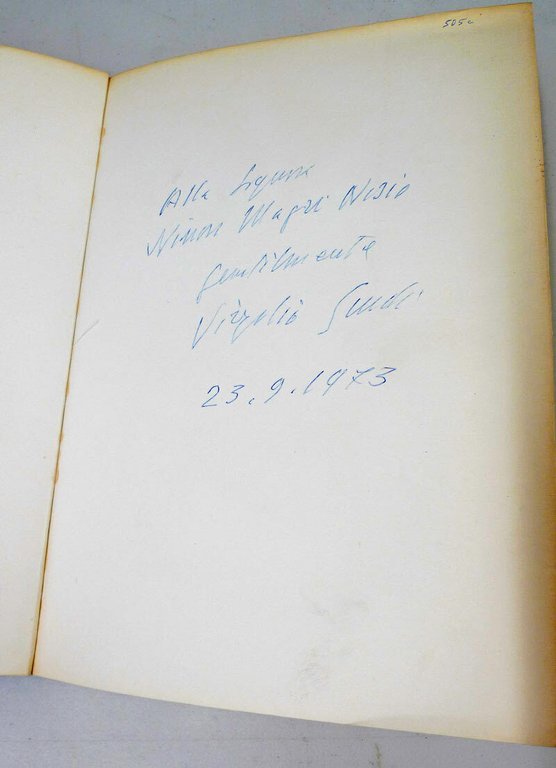 505c
Alla Signora
Ninon Magrì Nisio
gentilmente
Virgilio Guidi
23.9.1973